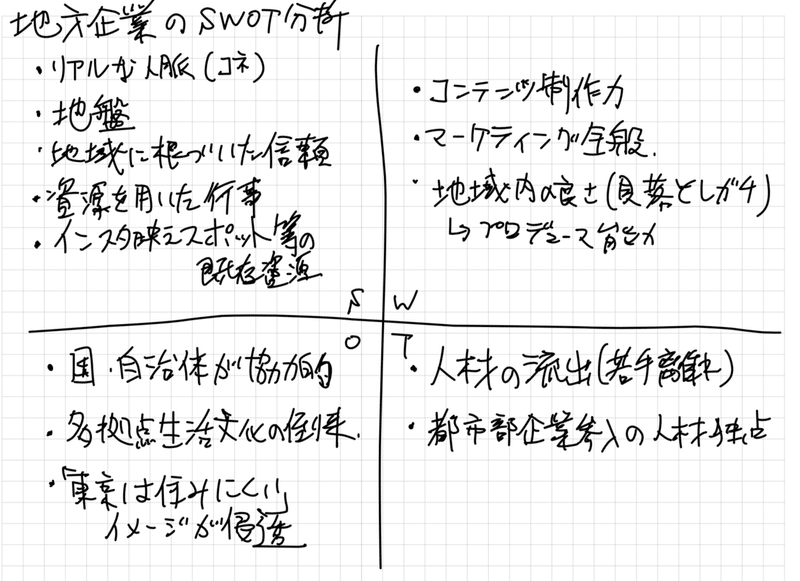 地方企業のSWOT分析
・リアルな人脈(コネ)
・地盤
・地域に根づいた信頼
・資源を用いた行事
・インスタ映えスポット等の
既存資源
S
・コンテンツ制作力
・マーケティング全般.
・地域内の良さ(見落としガチ)
↳プロデュース能力
W
O
・国・自治体が協力的
・多拠点生活文化の到来.
・「東京は住みにくい」
イメージが浸透
T
・人材の流出(若手離れ)
・都市部企業参入の人材独占